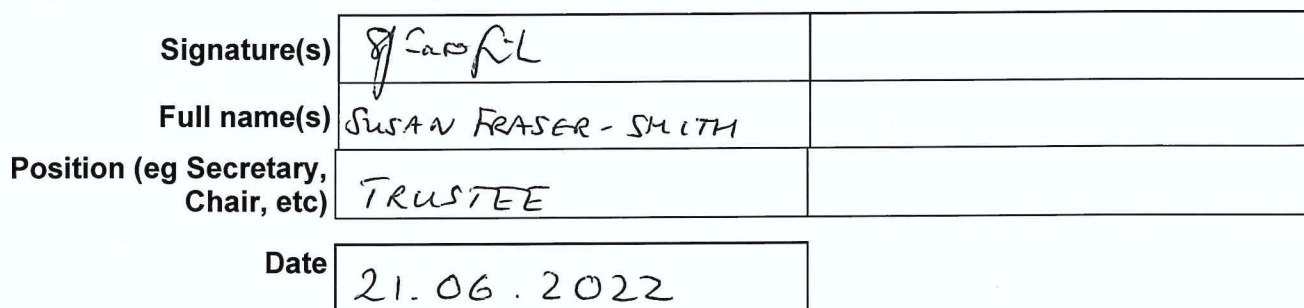 Signature(s)
Full name(s) SUSAN FRASER-SMITH
Position (eg Secretary,
Chair, etc) TRUSTEE
Date 21.06.2022